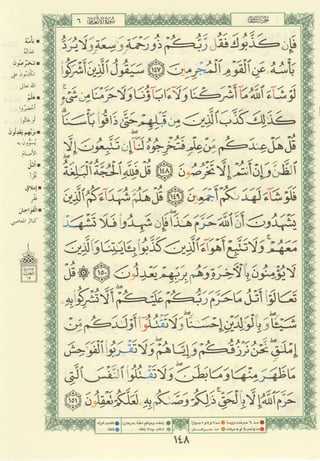 سُورَةُ الأَنْعَامِ ٦
فَإِن كَذَّبُوكَ فَقُل رَّبُّكُمْ ذُو رَحْمَةٍ وَاسِعَةٍ وَلَا يُرَدُّ
بَأْسُهُۥ عَنِ ٱلْقَوْمِ ٱلْمُجْرِمِينَ ١٤٧ سَيَقُولُ ٱلَّذِينَ أَشْرَكُوا۟
لَوْ شَآءَ ٱللَّهُ مَآ أَشْرَكْنَا وَلَآ ءَابَآؤُنَا وَلَا حَرَّمْنَا مِن شَىْءٍ ۚ
كَذَٰلِكَ كَذَّبَ ٱلَّذِينَ مِن قَبْلِهِمْ حَتَّىٰ ذَاقُوا۟ بَأْسَنَا ۗ
قُلْ هَلْ عِندَكُم مِّنْ عِلْمٍ فَتُخْرِجُوهُ لَنَآ ۖ إِن تَتَّبِعُونَ إِلَّا
ٱلظَّنَّ وَإِنْ أَنتُمْ إِلَّا تَخْرُصُونَ ١٤٨ قُلْ فَلِلَّهِ ٱلْحُجَّةُ ٱلْبَٰلِغَةُ ۖ
فَلَوْ شَآءَ لَهَدَىٰكُمْ أَجْمَعِينَ ١٤٩ قُلْ هَلُمَّ شُهَدَآءَكُمُ ٱلَّذِينَ
يَشْهَدُونَ أَنَّ ٱللَّهَ حَرَّمَ هَٰذَا ۖ فَإِن شَهِدُوا۟ فَلَا تَشْهَدْ
مَعَهُمْ ۚ وَلَا تَتَّبِعْ أَهْوَآءَ ٱلَّذِينَ كَذَّبُوا۟ بِـَٔايَٰتِنَا وَٱلَّذِينَ
لَا يُؤْمِنُونَ بِٱلْـَٔاخِرَةِ وَهُم بِرَبِّهِمْ يَعْدِلُونَ ١٥٠ ۞ قُلْ
تَعَالَوْا۟ أَتْلُ مَا حَرَّمَ رَبُّكُمْ عَلَيْكُمْ ۖ أَلَّا تُشْرِكُوا۟ بِهِۦ
شَيْـًٔا ۖ وَبِٱلْوَٰلِدَيْنِ إِحْسَٰنًا ۖ وَلَا تَقْتُلُوٓا۟ أَوْلَٰدَكُم مِّنْ
إِمْلَٰقٍ ۖ نَّحْنُ نَرْزُقُكُمْ وَإِيَّاهُمْ ۖ وَلَا تَقْرَبُوا۟ ٱلْفَوَٰحِشَ
مَا ظَهَرَ مِنْهَا وَمَا بَطَنَ ۖ وَلَا تَقْتُلُوا۟ ٱلنَّفْسَ ٱلَّتِى
حَرَّمَ ٱللَّهُ إِلَّا بِٱلْحَقِّ ۚ ذَٰلِكُمْ وَصَّىٰكُم بِهِۦ لَعَلَّكُمْ تَعْقِلُونَ ١٥١
بأسُهُ
عَذَابُهُ
تَخْرُصُونَ
هَلُمَّ
بربّهم يَعدلون
أتْلُ
إملاق
فَقْر
الفواحش
١٤٨